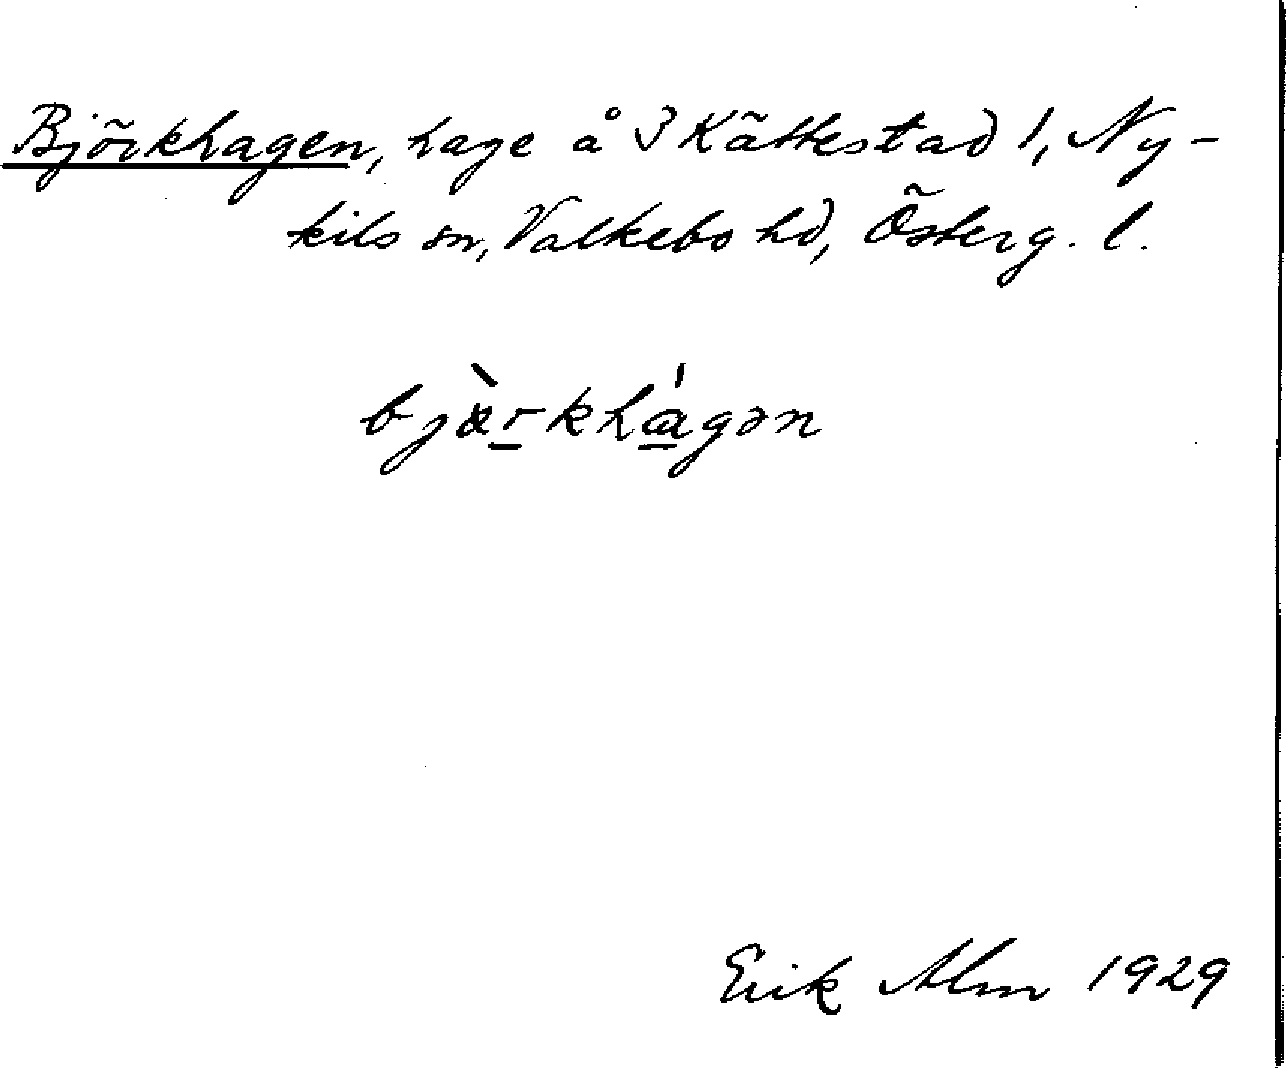 Björkhagen, hage å 3 Kättestad 1, Ny-
kils sn, Valkebo hd, Österg. l.
bjæ̀rkhágən
Erik Alm 1929